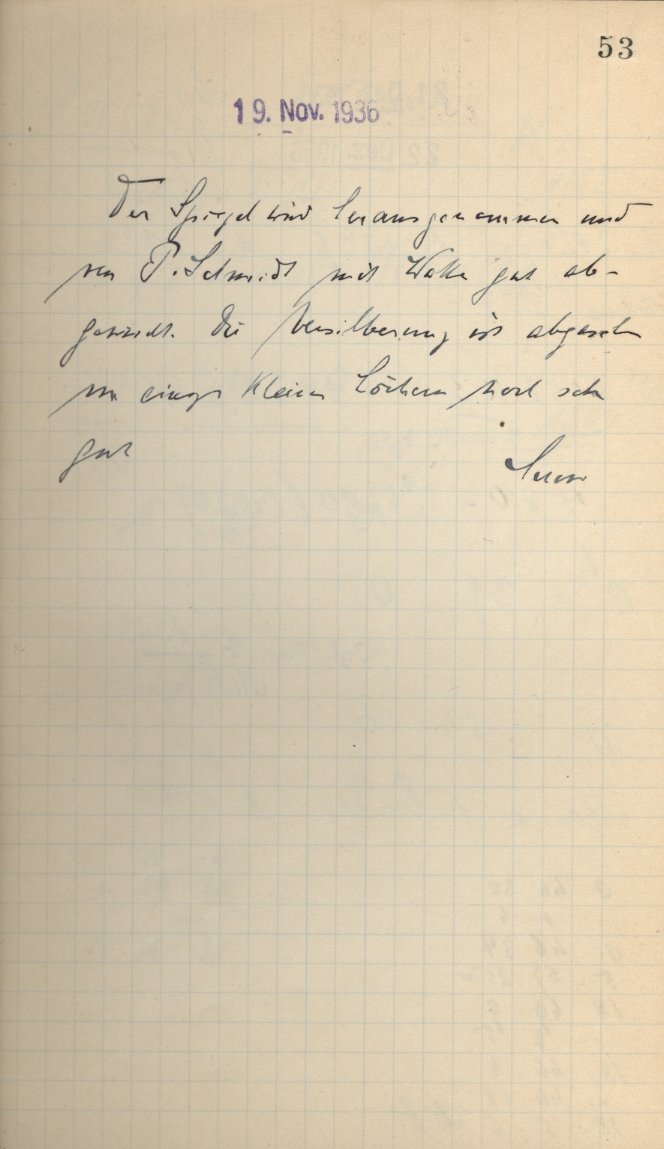 53
19. Nov. 1936
Der Spiegel wird herausgenommen und
von P. Schmidt mit Watte gut ab-
gewischt. Die Versilberung ist abgesehen
von einigen kleinen Löchern noch sehr
gut